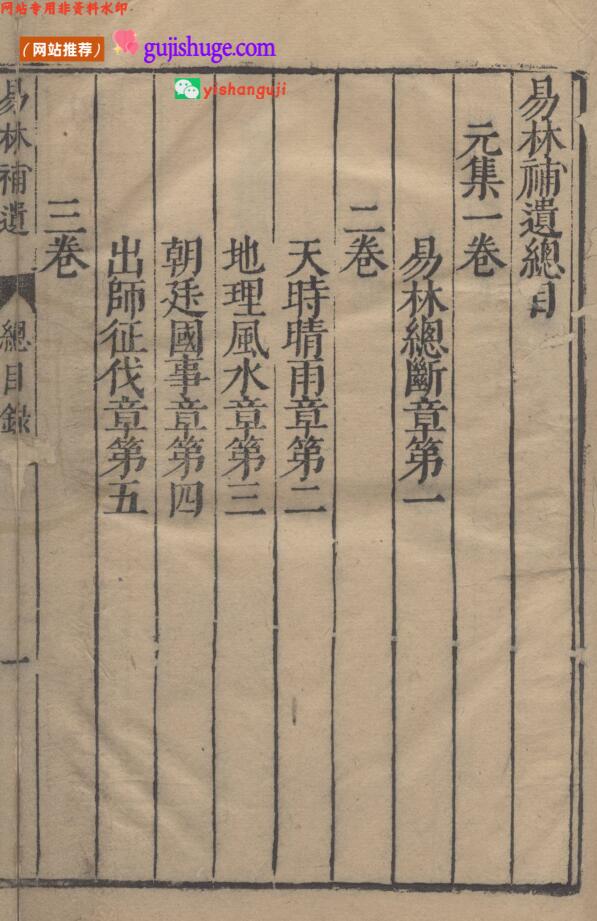 网站专用非资料水印
（网站推荐）
gujishuge.com
yishanguji
易林補遺總目
元集一卷
易林總斷章第一
二卷
天時晴雨章第二
地理風水章第三
朝廷國事章第四
出師征伐章第五
三卷
易林補遺
總目錄
一